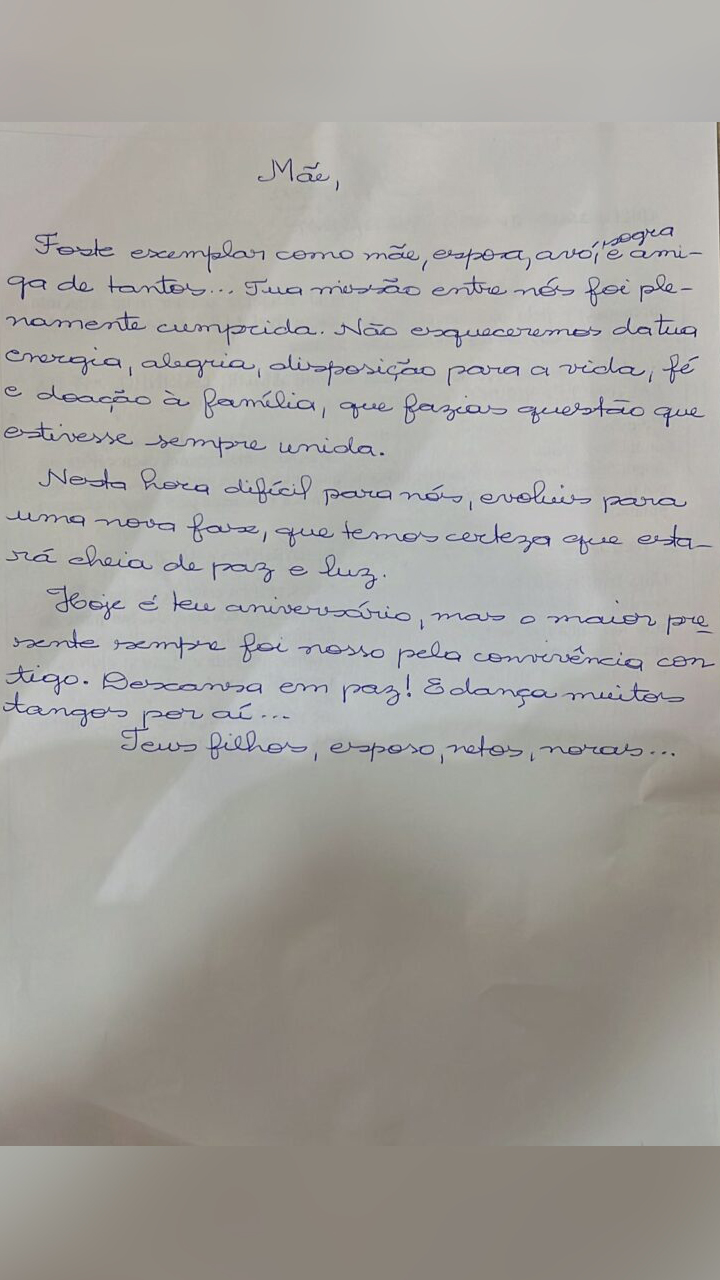 Mãe,
Foste exemplar como mãe, esposa, avó, sogra e ami-
ga de tantos... Tua missão entre nós foi ple-
namente cumprida. Não esqueceremos da tua
energia, alegria, disposição para a vida, fé
e doação à família, que fazias questão que
estivesse sempre unida.
Nesta hora difícil para nós, evoluis para
uma nova fase, que temos certeza que esta-
rá cheia de paz e luz.
Hoje é teu aniversário, mas o maior pre
sente sempre foi nosso pela convivência con
tigo. Descansa em paz! E dança muitos
tangos por aí...
Teus filhos, esposo, netos, noras...